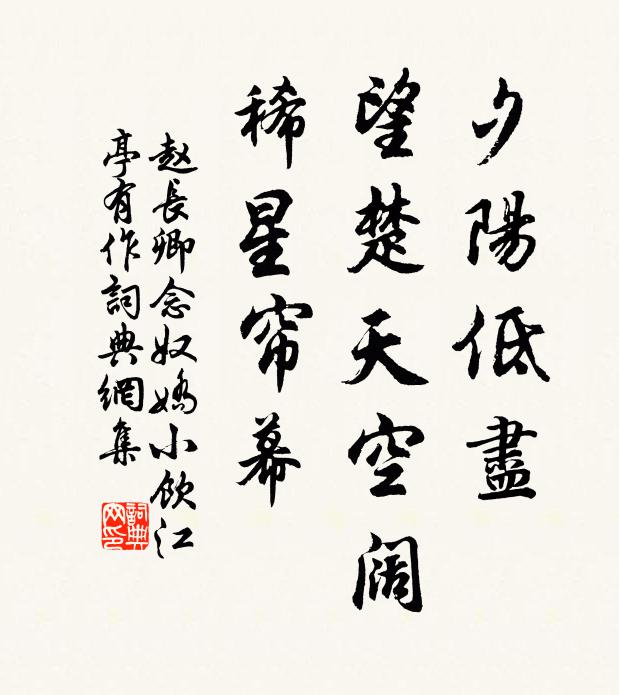 夕陽低盡
望楚天空阔
稀星帘幕
赵長卿念奴嬌小飲江
亭有作詞典網集
詞典
网印